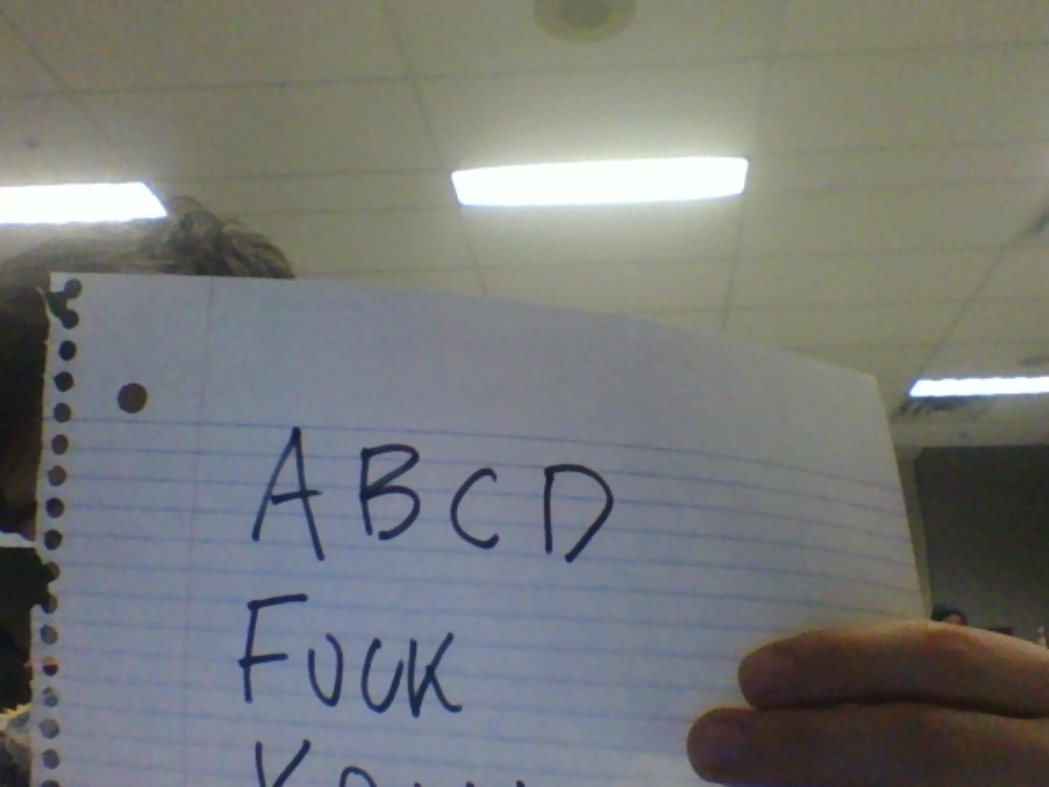 ABCD
FUCK